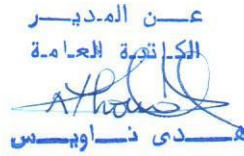 عن المدير
الكاتبة العامة
هدى ناويس